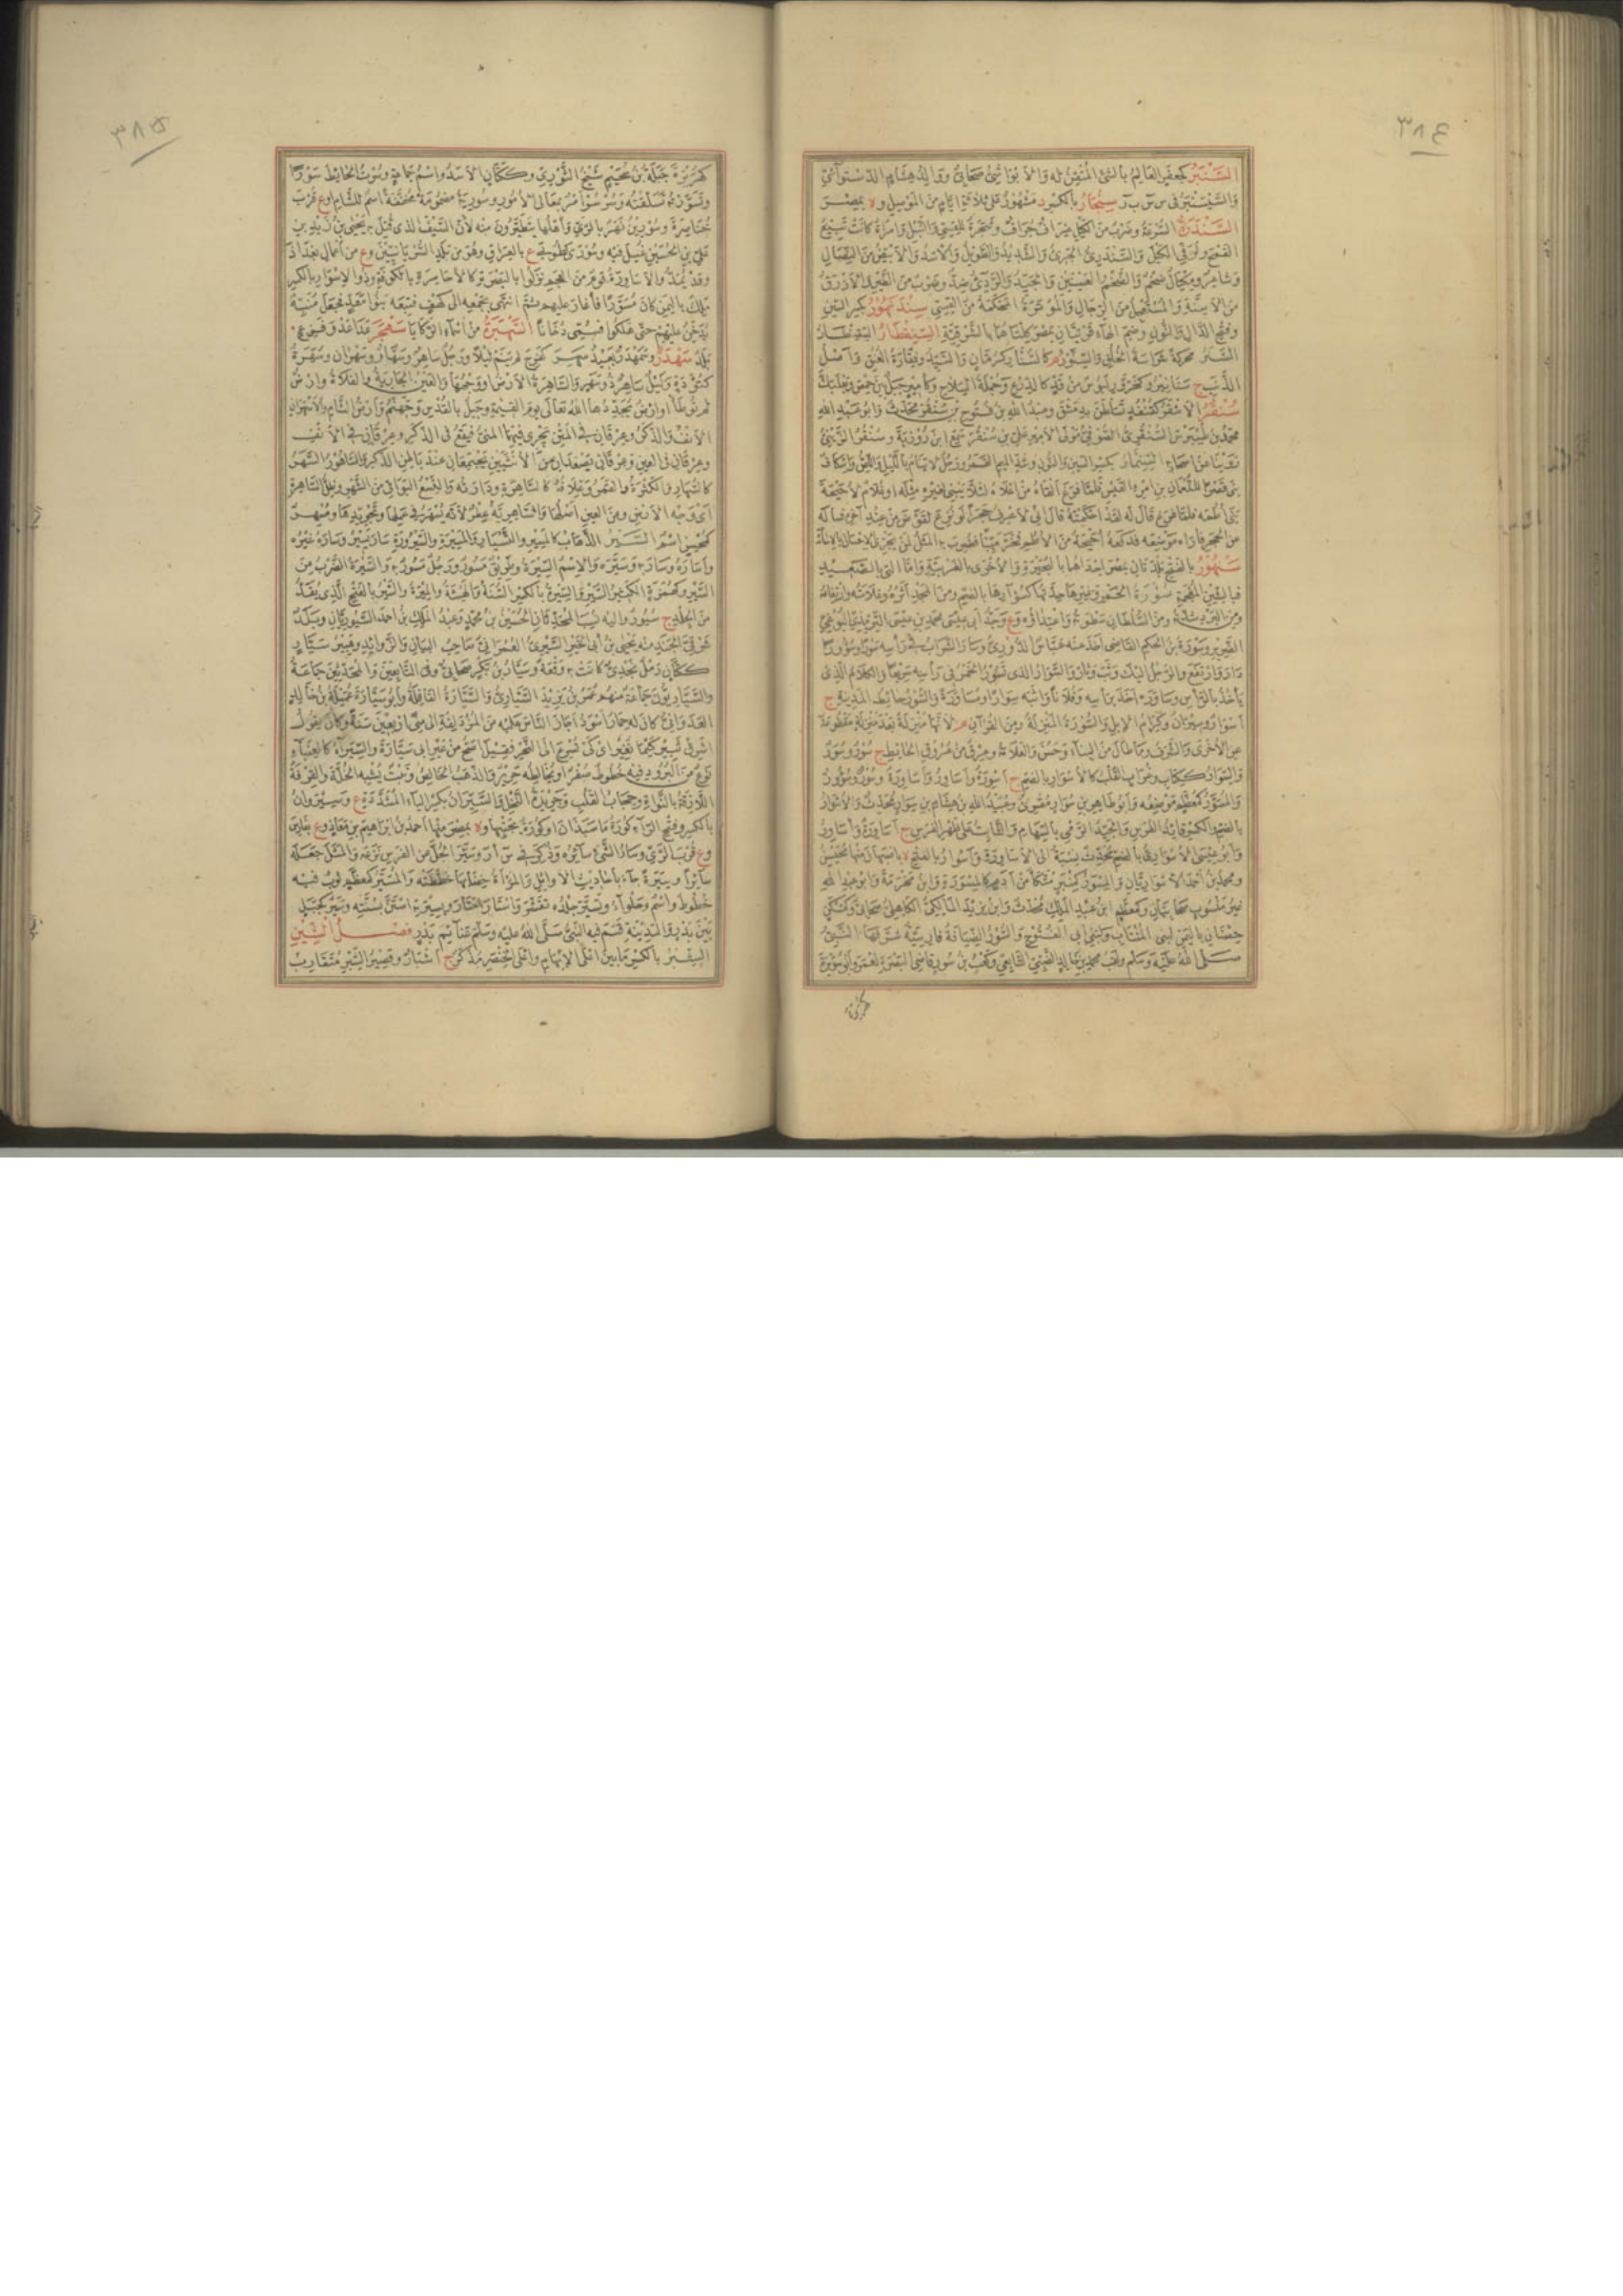 ٣٨٤
السَّنْبَرُ كجعفر العالم بالشئ المتقن له والابواشي صحابي ووالد هشام الدستوآئي
والسيسنبر في س س ب ر سنجار بالكسر د مشهور على ثلاثة ايام من الموصل و ة بمصر
السندرة السرعة وضرب من الكيل غراف جراف وشجرة للقسي والنبل وامرأة كانت تبيع
القمح وتوفي الكيل والسندري الجرئ والشديد والطويل والاسد والابيض من النصال
وشاعر ومكيال ضخم والضخم العينين والجيد والردئ ضد وضرب من الطير والازرق
من الاسنة والمستعجل من الرجال والموترة المحكمة من القسي سندنهور بكسر السين
وفتح الدال والنون وضم الهاء قريتان بمصر كلتاهما بالشرقية السنقطار السقنطار
السنر محركة شراسة الخلق والسنور م كالسنار كرمان والسيد وفقارة العنق واصل
الذنب ج سنانير وكحزور لبوس من قد كالدرع وجملة السلاح وكامير جبل بين حمص وبعلبك
سنقر الاشقر كقنفذ تسلطن بدمشق وعبد الله بن فتوح بن سنقر محدث وابو عبد الله
محمد بن طيبرس السنقري الصوفي مولى الامير علي بن سنقر سمع ابن روزبة وسنقر الزيني
روينا عن اصحابه السنمار بكسر السين والنون وشد الميم القمر ورجل لا ينام بالليل واللص واسكاف
بنى قصرا للنعمان بن امرئ القيس فلما فرغ القاه من اعلاه لئلا يبني لغيره مثله او غلام لاحيحة
بنى اطمه فلما فرغ قال له لقد احكمته قال اني لاعرف حجرا لو نزع لتقوض من عند آخره فساله
من الحجر فاراه موضعه فدفعه احيحة من الاطم فخر ميتا فضرب به المثل لمن يجزي بالاحسان الاساءة
سنهور بالفتح بلدتان بمصر احداهما بالبحيرة والاخرى بالغربية واما التي بالصعيد
فبالشين المعجمة سورة الخمر وغيرها حدتها كسوارها بالضم ومن المجد اثره وعلامته وارتفاعه
ومن البرد شدته ومن السلطان سطوته واعتداؤه و ع وجد ابي عيسى محمد بن عيسى الترمذي البوغي
الضرير وسورة بن الحكم القاضي اخذ عنه عباس الدوري وسار الشراب في راسه سورا وسؤورا
دار وارتفع والرجل اليك وثب وثار والسوار الذي تسور الخمر في راسه سريعا والكلام الذي
ياخذ بالراس وساوره اخذ براسه وفلانا واثبه سوارا ومساورة والسور حائط المدينة ج
اسوار وسيران وكرام الابل والسورة المنزلة ومن القرآن م لانها منزلة بعد منزلة مقطوعة
عن الاخرى والشرف وما طال من البناء وحسن والعلامة وعرق من عروق الحائط ج سور وسور
والسوار ككتاب وغراب القلب كالاسوار بالضم ج اسورة واساور واساورة وسور وسؤور
والمسور كمعظم موضعه وابو طاهر بن سوار مقرئ وعبيد الله بن هشام بن سوار محدث والاسوار
بالضم والكسر قائد الفرس والجيد الرمي بالسهام والثابت على ظهر الفرس ج اساورة واساور
وابو عيسى الاسواري بالضم محدث نسبة الى الاساورة واسوار بالفتح ة باصبهان منها محيسن
ومحمد بن احمد الاسواريان والمسور كمنبر متكأ من ادم كالمسورة وابن مخرمة وابو عبد الله
غير منسوب صحابيان وكمعظم ابن عبد الملك محدث وابن يزيد المالكي الكاهلي صحابي وككتان
حصنان باليمن لبني المنتاب ولبني ابي الفتوح والسور الضيافة فارسية شرفها النبي
صلى الله عليه وسلم ولقب محمد بن خالد الضبي التابعي وكعب بن سور قاضي البصرة لعمر وابو سويرة
كهريرة
٣٨٥
كهريرة جبلة بن سحيم شيخ الثوري وككتان الاسد واسم جماعة وسرت الحائط سورا
وتسورته تسلقته وسر سر امر بمعالي الامور وسورية مضمومة مخففة اسم للشام او ع قرب
خناصرة وسورين نهر بالري واهلها يتطيرون منه لان السيف الذي قتل به يحيى بن زيد بن
علي بن الحسين غسل فيه وسورى كطوبى ع بالعراق وهو من بلد السريانيين و ع من اعمال بغداد
وقد يمد والاساورة قوم من العجم نزلوا بالبصرة كالاحامرة بالكوفة وذو الاسوار بالكسر
ملك باليمن كان مسورا فاغار عليهم ثم انتهى بجمعه الى كهف فتبعه بنو معد فجعل منبه
يدخن عليهم حتى هلكوا فسمي دخانا السهبرة من اسماء الركايا سهجر عدا عدو فزع
بلد سهدر وسمهدر بعيد سهر كفرح لم ينم ليلا ورجل ساهر وسهار وسهران وسهرة
كتؤدة وليل ساهر ذو سهر والساهرة الارض او وجهها والعين الجارية والفلاة وارض
لم توطأ او ارض يجددها الله تعالى يوم القيمة وجبل بالقدس وجهنم وارض الشام والاسهران
الانف والذكر وعرقان في المتن يجري فيهما المني فيقع في الذكر وعرقان في الانف
وعرقان في العين وعرقان يصعدان من الانثيين يجتمعان عند باطن الذكر والساهور السهر
كالسهار والكثرة والقمر وغلافه كالساهرة ودارته والتسع البواقي من الشهر وظل الساهرة
اي وجه الارض ومن العين اصلها والساهرية عطر لانه يسهر في عملها وتجويدها ومسهر
كمحسن اسم السير الذهاب كالمسير والتسيار والمسيرة والسيرورة سار يسير وساره غيره
واساره وسار به وسيره والاسم السيرة وطريق مسور ورجل مسور به والسيرة الضرب من
السير وكهمزة الكثير السير والسيرة بالكسر السنة والهيئة والميرة والسير بالفتح الذي يقد
من الجلد ج سيور واليه نسب المحدثان الحسين بن محمد وعبد الملك بن احمد السيوريان وبلد
شرقي الجند منه يحيى بن ابي الخير السيري العمراني صاحب البيان والزوائد وهبير سيار
ككتان رمل نجدي كانت به وقعة وسيار بن بكر صحابي وفي التابعين والمحدثين جماعة
والسياريون جماعة منهم عمر بن يزيد السياري والسيارة القافلة وابو سيارة عميلة بن خالد
العدواني كان له حمار اسود اجاز الناس عليه من المزدلفة الى منى اربعين سنة وكان يقول
اشرق ثبير كيما نغير اي كي نسرع الى النحر فقيل اصح من عير ابي سيارة والسيرآء كالعنبآء
نوع من البرود فيه خطوط صفر او يخالطه حرير والذهب الخالص ونبت يشبه الخلة والقرفة
اللازقة بالنواة وحجاب القلب وجريدة النخل والسيران بكسر الياء المشددة ع وسيروان
بالكسر وفتح الرآء كورة ماسبذان او كورة بجنبها و ة بمصر منها احمد بن ابراهيم بن معاذ و ع بفارس
و ع قرب الري وسار الشئ سائره وذكر في س أ ر وسير الجل عن الفرس نزعه والمثل جعله
سآئرا وسيرة جآء باحاديث الاوائل والمرأة خضابها خططته والمسير كمعظم ثوب فيه
خطوط واسم وحلوآء وتسير جلده تقشر واستار امتار وبسيرته استن بسنته وسير كجبل
بين بدر والمدينة قسم فيه النبي صلى الله عليه وسلم غنآئم بدر فصل الشين
الشبر بالكسر ما بين اعلى الابهام واعلى الخنصر مذكر ج اشبار وقصير الشبر متقارب